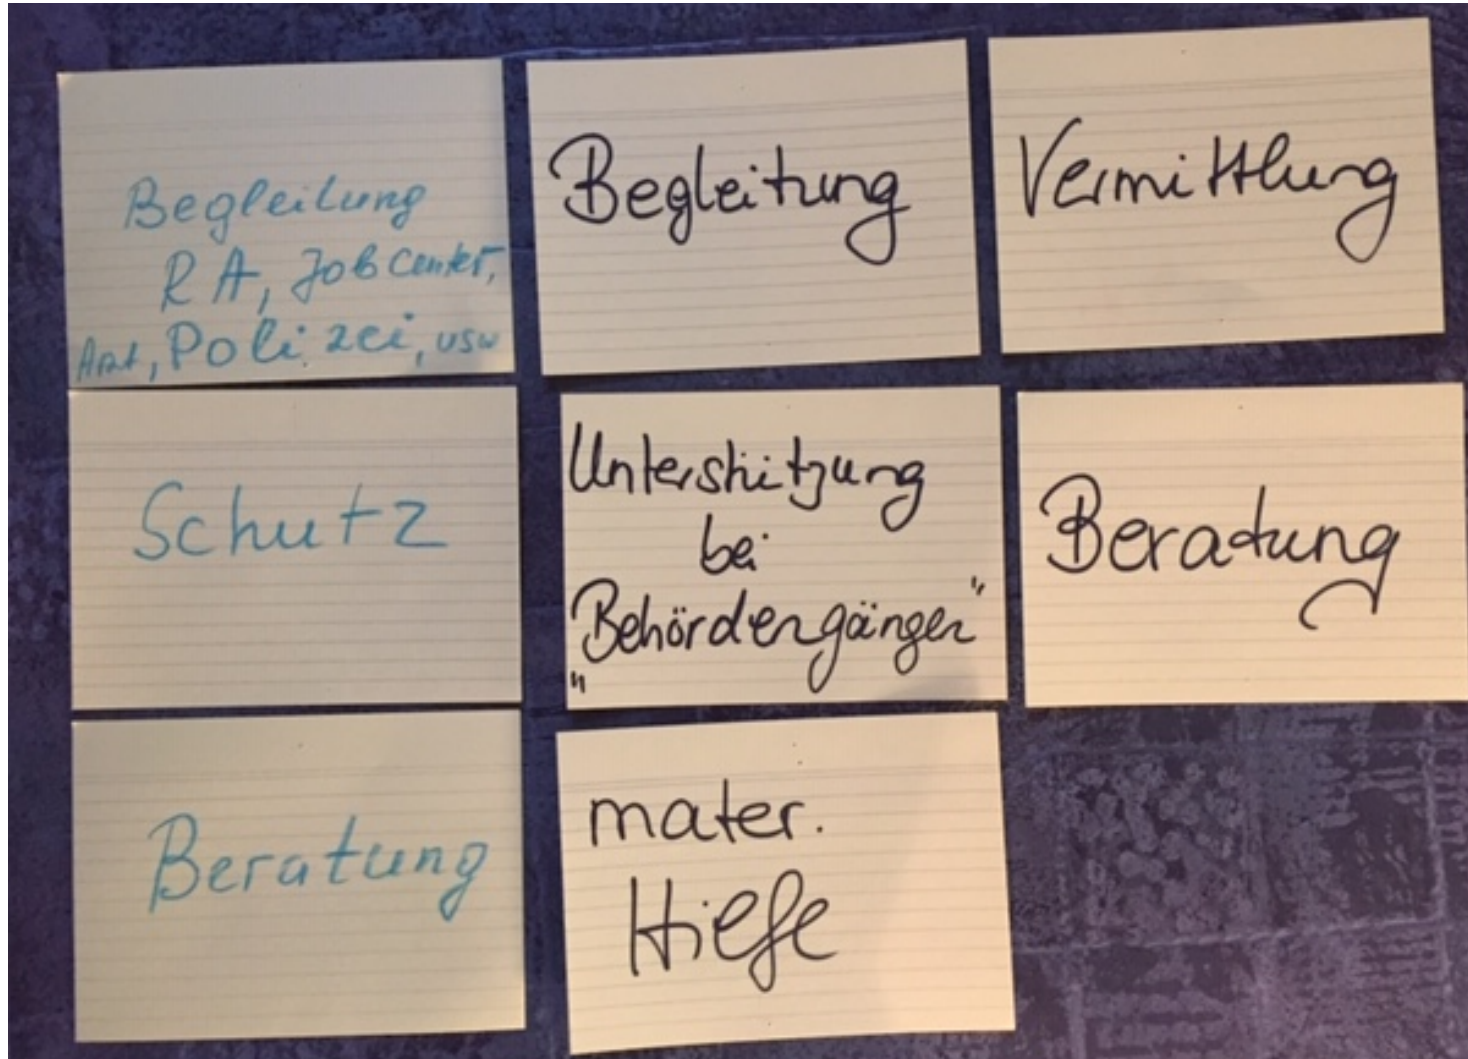 Begleitung
RA, Jobcenter,
Arzt, Polizei, usw
Begleitung
Vermittlung
Schutz
Unterstützung
bei
"Behördengängen"
Beratung
Beratung
mater.
Hilfe